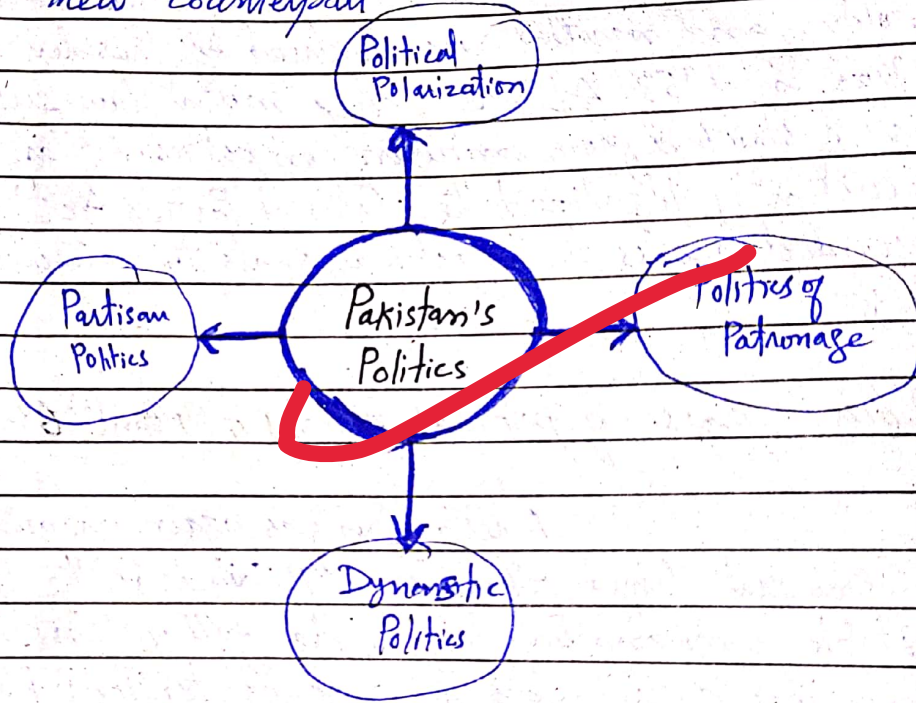 Political
Polarization
Partisan
Politics
Pakistan's
Politics
Politics of
Patronage
Dynastic
Politics